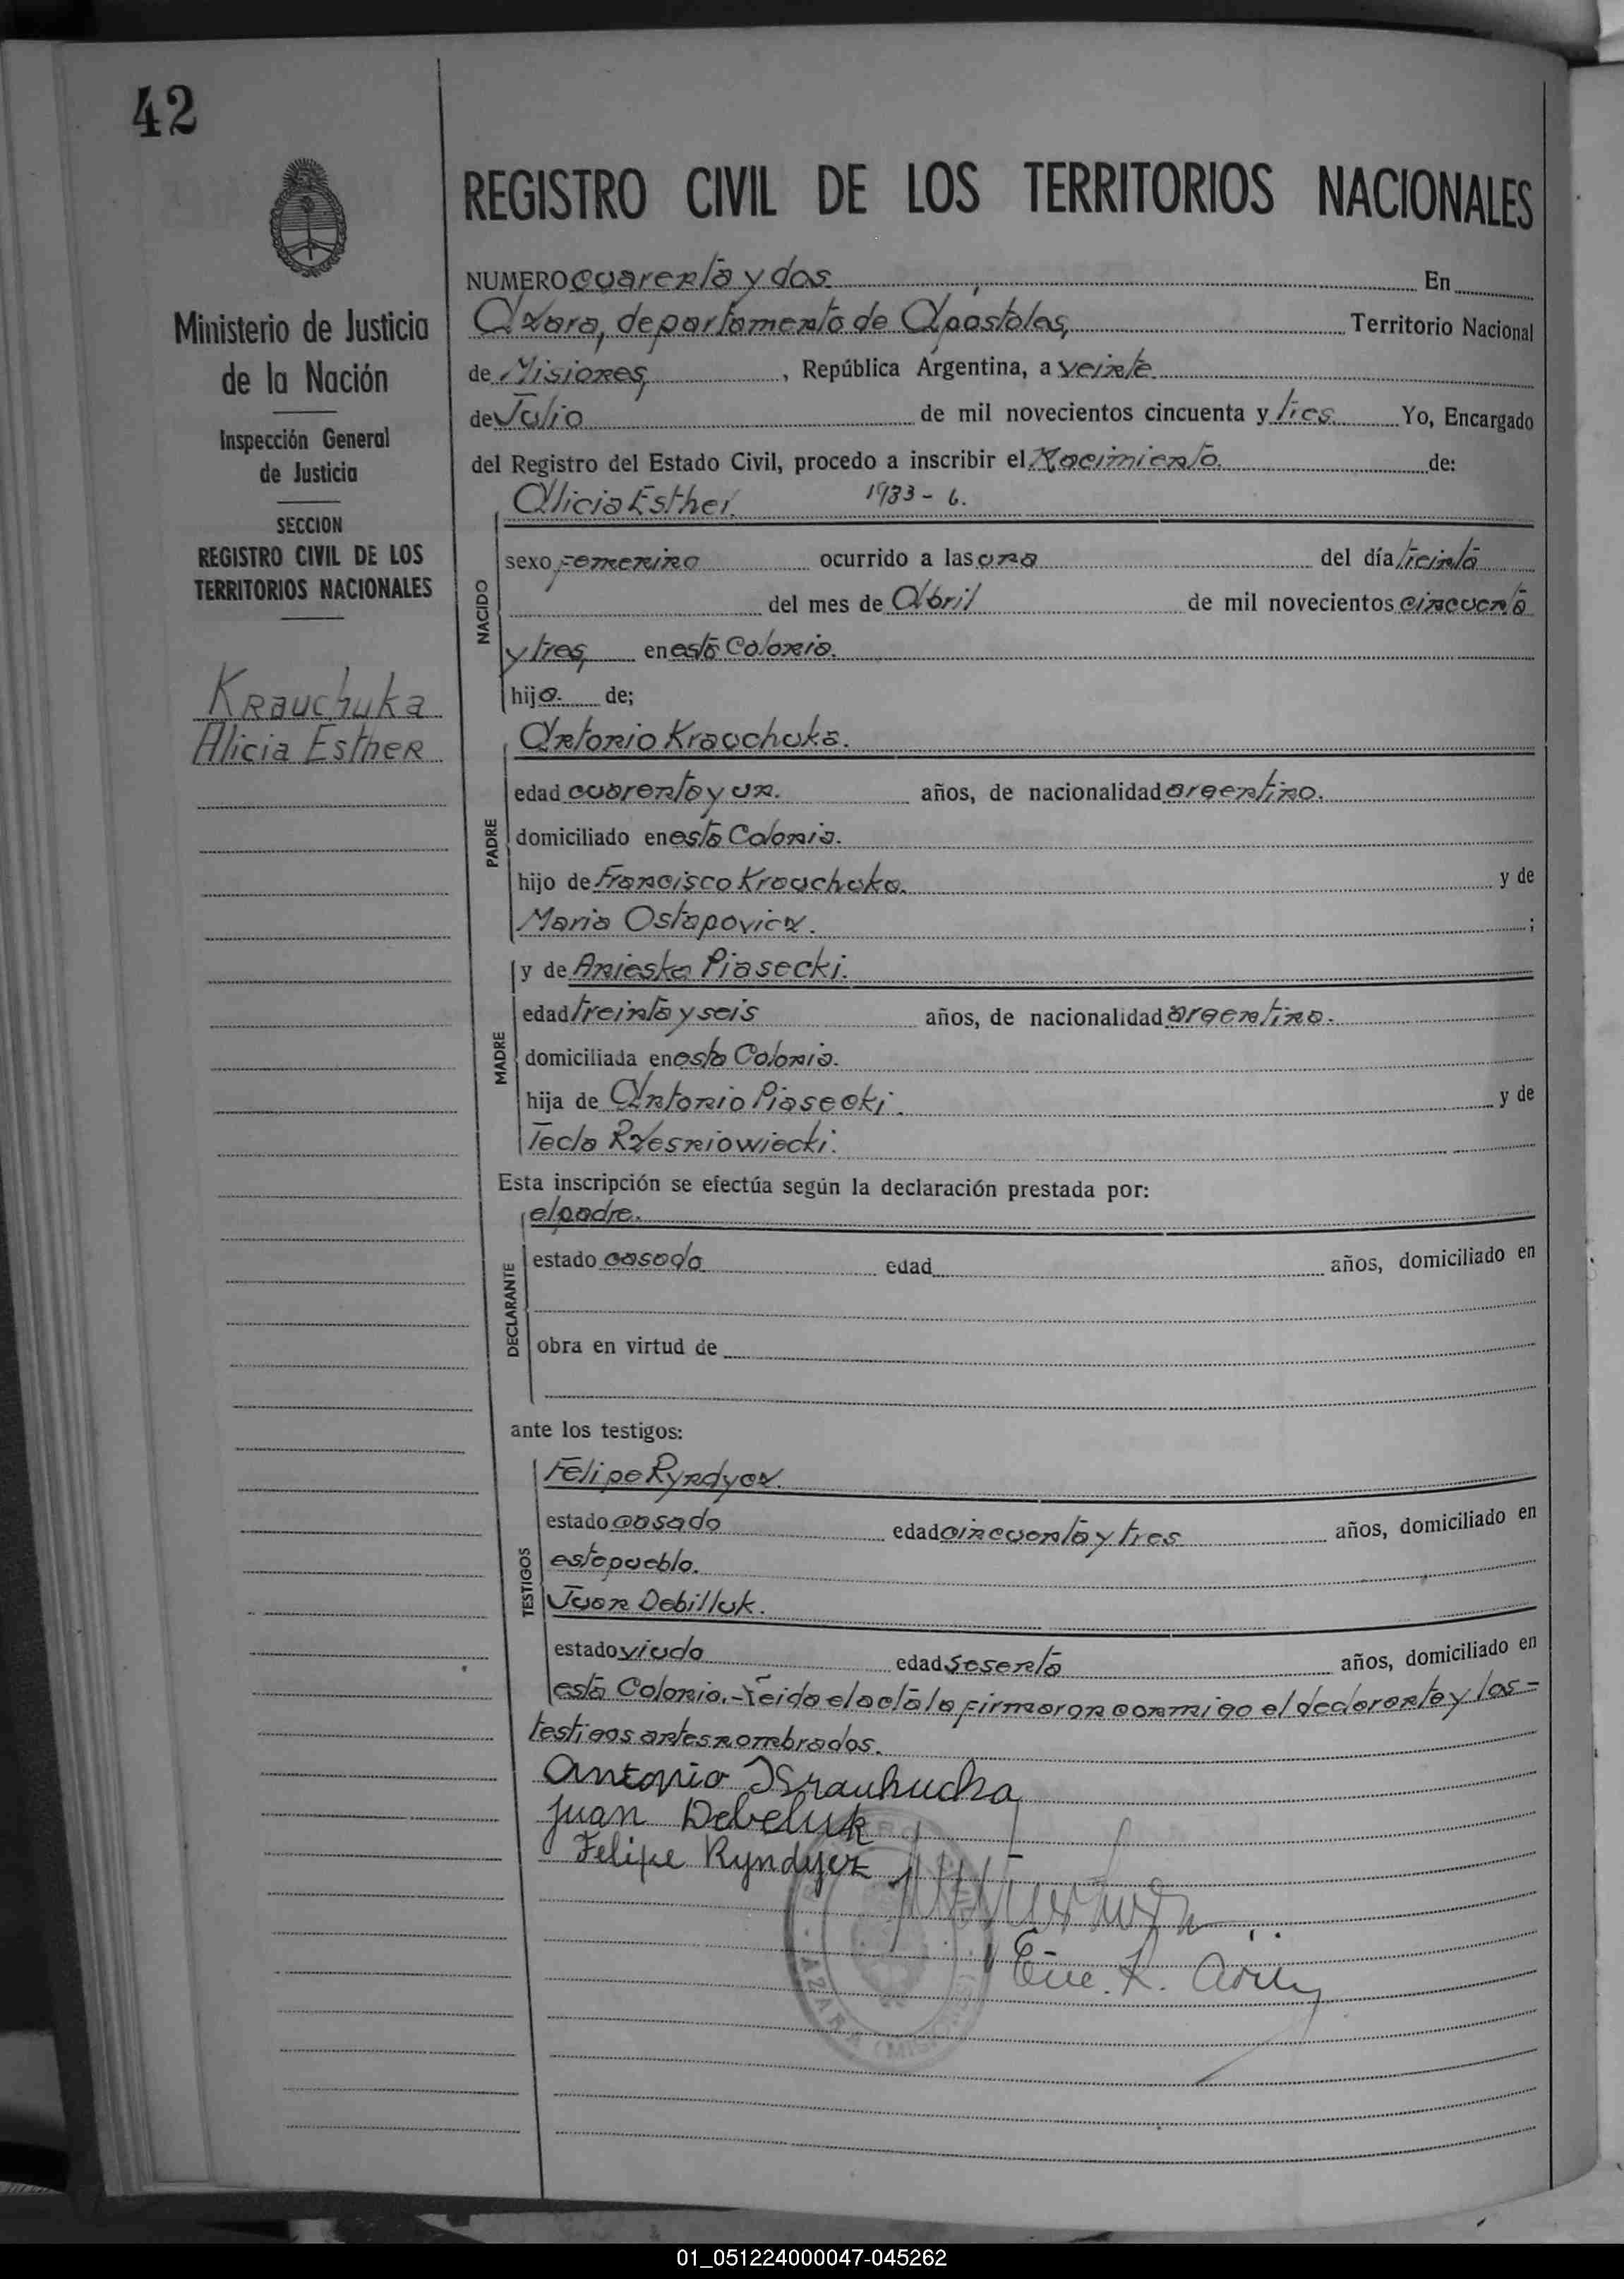 42
REGISTRO CIVIL DE LOS TERRITORIOS NACIONALES
Ministerio de Justicia
de la Nación
Inspección General
de Justicia
SECCION
REGISTRO CIVIL DE LOS
TERRITORIOS NACIONALES
Krauchuka
Alicia Esther
NUMERO cuarenta y dos En
Azara, departamento de Apóstoles, Territorio Nacional
de Misiones, , República Argentina, a veinte
de Julio de mil novecientos cincuenta y tres Yo, Encargado
del Registro del Estado Civil, procedo a inscribir el Nacimiento de:
Alicia Esther. 1933 - 6.
NACIDO
sexo femenino ocurrido a las una del día treinta
del mes de Abril de mil novecientos cincuenta
y tres, en esta Colonia.
hija. de;
PADRE
Antonio Krauchuka.
edad cuarenta y un. años, de nacionalidad argentino.
domiciliado en esta Colonia.
hijo de Francisco Krauchuka. y de
Maria Ostapovicz. ;
MADRE
y de Anieska Piasecki.
edad treinta y seis años, de nacionalidad argentina.
domiciliada en esta Colonia.
hija de Antonio Piasecki. y de
Tecla Rzesniowiecki.
Esta inscripción se efectúa según la declaración prestada por:
DECLARANTE
el padre.
estado casado edad años, domiciliado en
obra en virtud de
ante los testigos:
TESTIGOS
Felipe Ryndycz.
estado casado edad cincuenta y tres años, domiciliado en
este pueblo.
Juan Debilluk.
estado viudo edad sesenta años, domiciliado en
esta Colonia.-Leida el acta la firmaron conmigo el declarante y los-
testigos antes nombrados.
Antonio Krauhucka
Juan Debeluk
Felipe Ryndycz
AZARA (MISIONES)
Enc. R. Civil
01_051224000047-045262